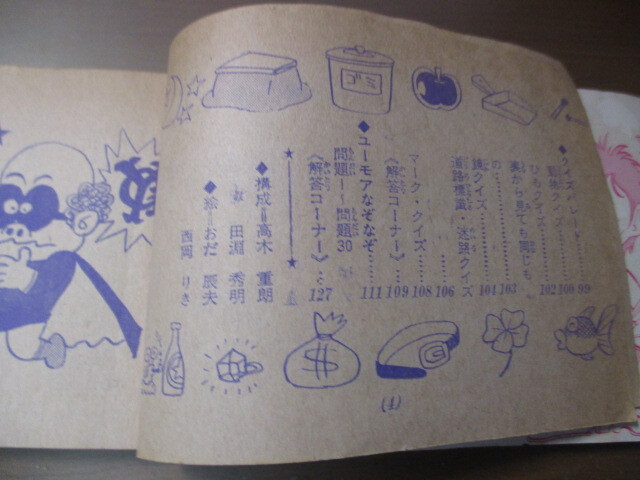 ◆クイズパレード………99
動物クイズ………100
ひもクイズ………102
裏から見ても同じもの………103
鏡クイズ………104
道路標識・迷路クイズ………106
マーク・クイズ………108
《解答コーナー》………109
◆ユーモアなぞなぞ………111
問題1〜問題30
《解答コーナー》…127
★―――――★
◆構成＝高木 重朗
田淵 秀明
◆絵＝おだ 辰夫
西岡 りき
ゴミ
$
(4)